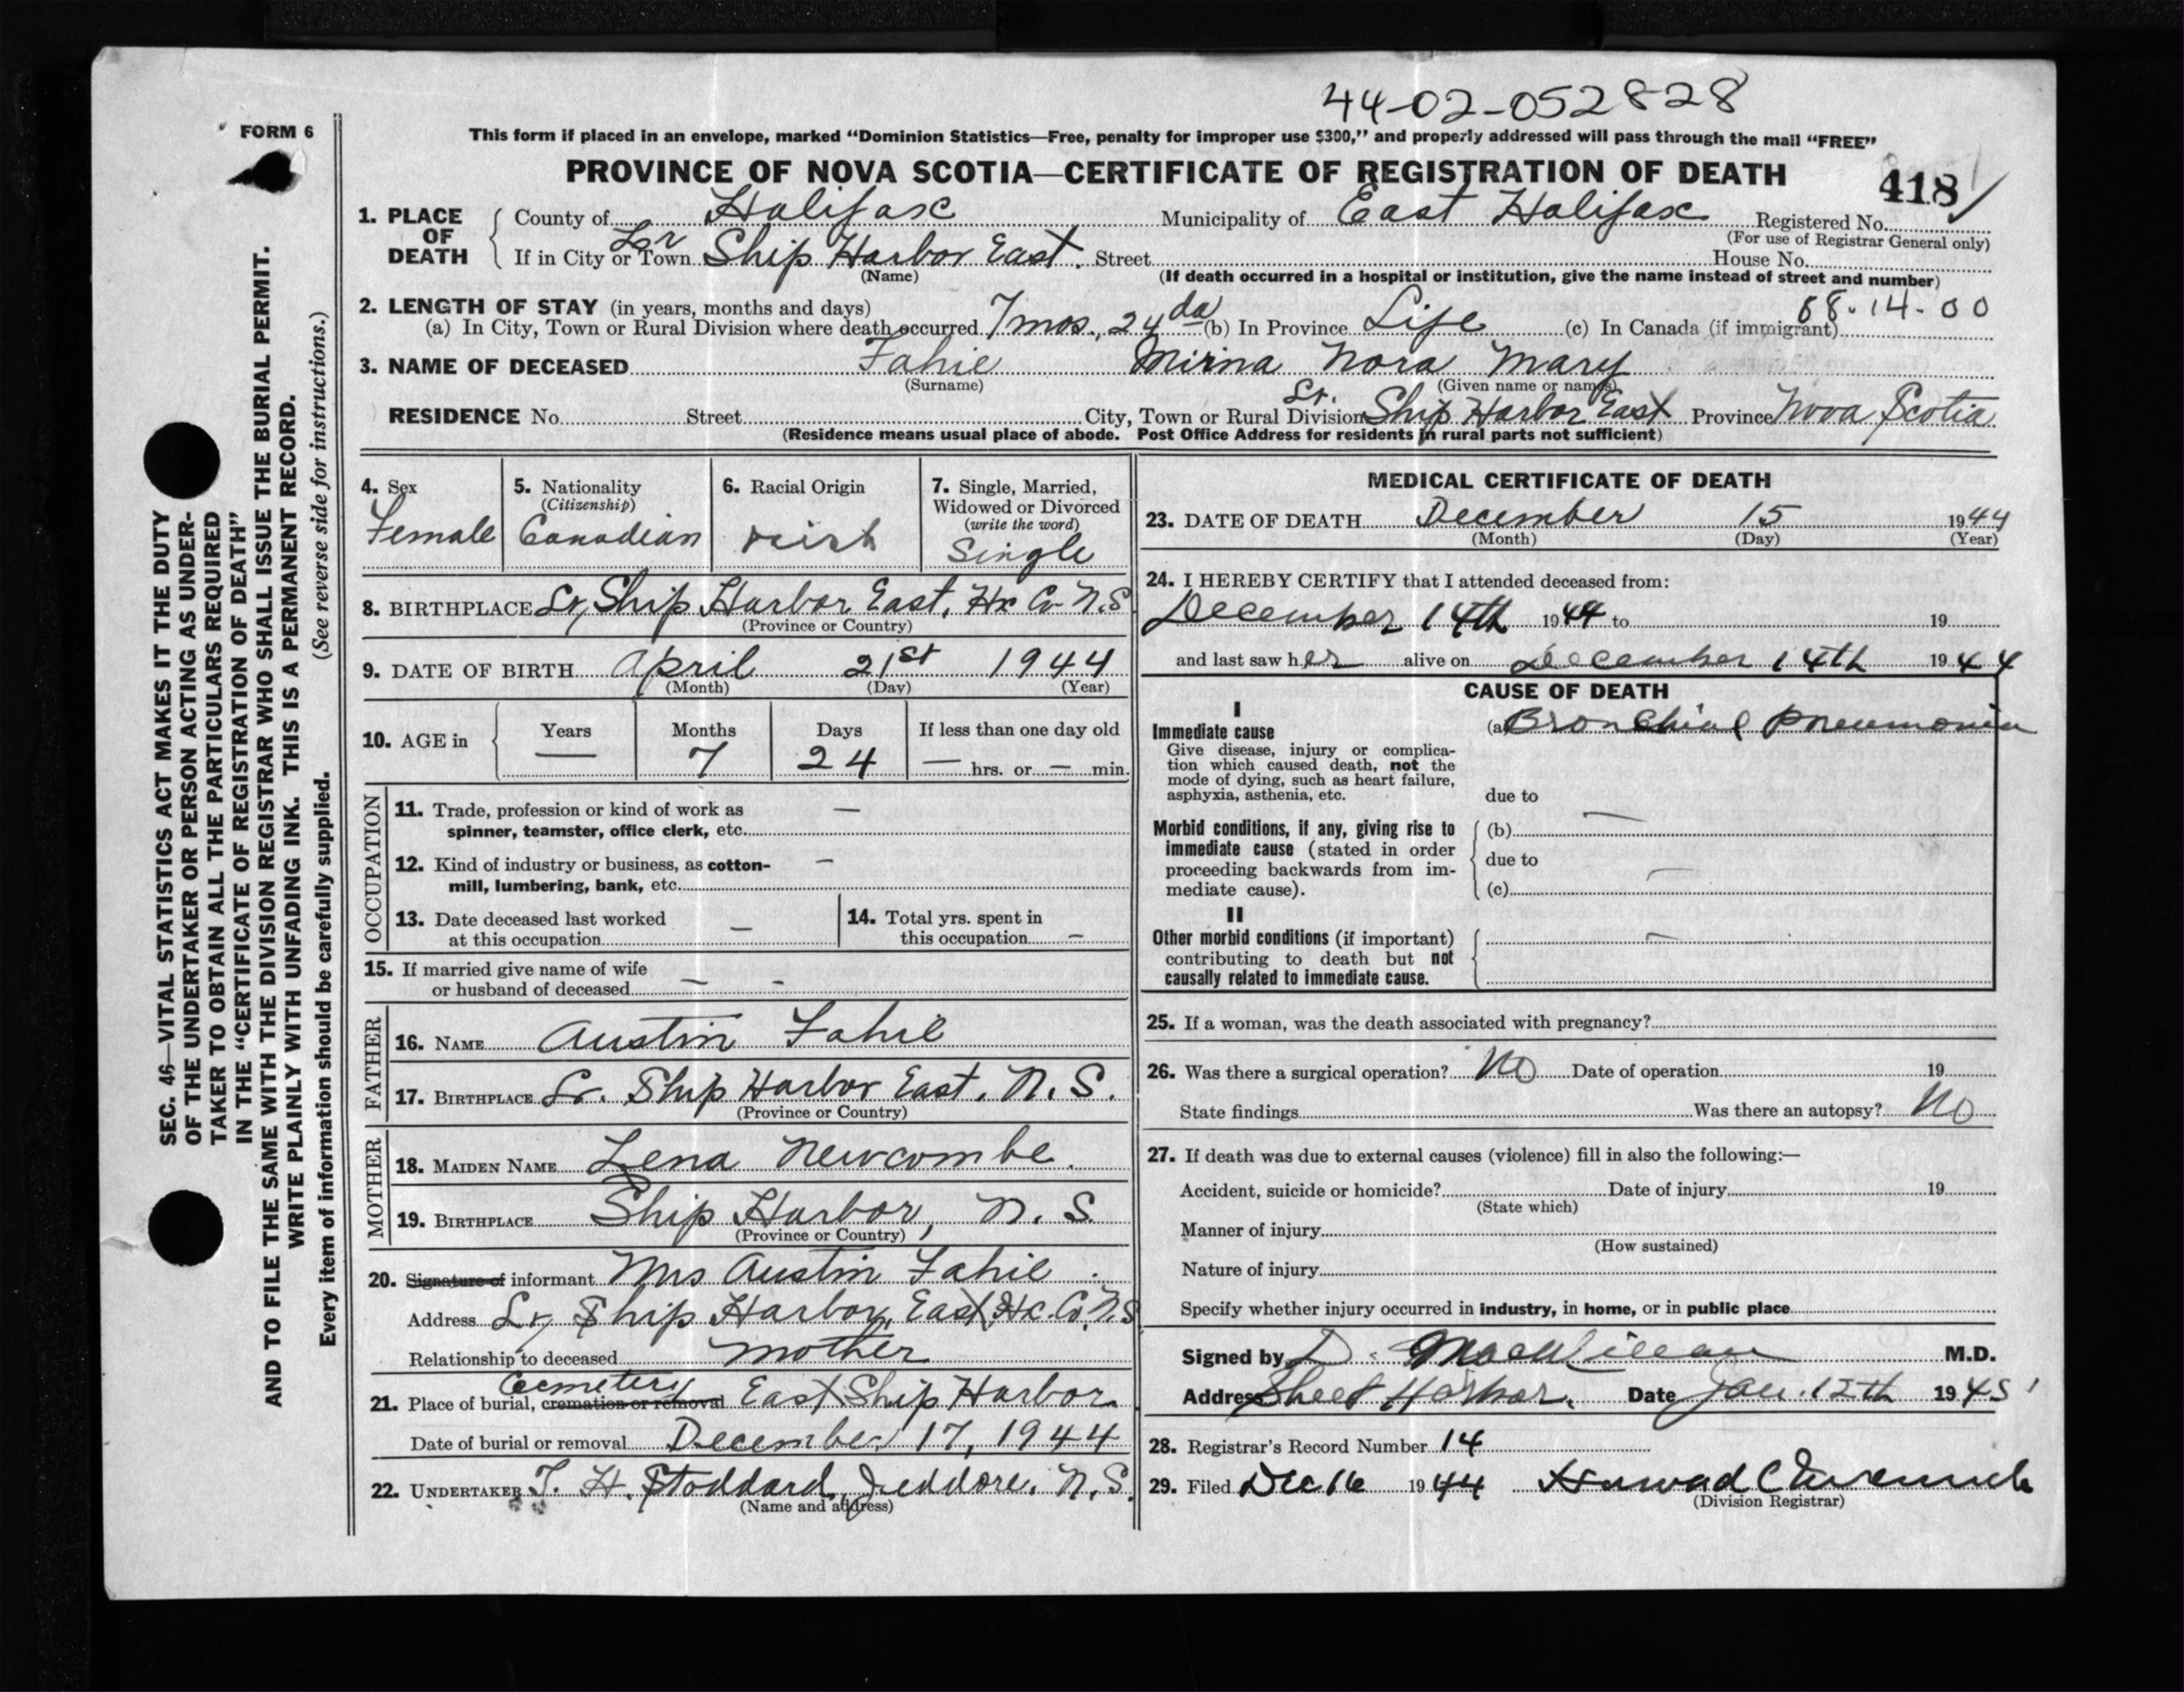 44-02-052828
FORM 6
This form if placed in an envelope, marked "Dominion Statistics—Free, penalty for improper use $300," and properly addressed will pass through the mail "FREE"
PROVINCE OF NOVA SCOTIA—CERTIFICATE OF REGISTRATION OF DEATH
418
1. PLACE OF DEATH County of Halifax Municipality of East Halifax Registered No.
(For use of Registrar General only)
If in City or Town Lr Ship Harbor East. Street House No.
(Name) (If death occurred in a hospital or institution, give the name instead of street and number)
2. LENGTH OF STAY (in years, months and days) 68-14-00
(a) In City, Town or Rural Division where death occurred 7 mos., 24 da (b) In Province Life (c) In Canada (if immigrant)
3. NAME OF DECEASED Fahie Mirna Nora Mary
(Surname) (Given name or names)
RESIDENCE No. Street City, Town or Rural Division Lr. Ship Harbor East Province Nova Scotia
(Residence means usual place of abode. Post Office Address for residents in rural parts not sufficient)
4. Sex
Female
5. Nationality
(Citizenship)
Canadian
6. Racial Origin
Irish
7. Single, Married,
Widowed or Divorced
(write the word)
Single
8. BIRTHPLACE Lr, Ship Harbor East, Hx Co N.S
(Province or Country)
9. DATE OF BIRTH April 21st 1944
(Month) (Day) (Year)
10. AGE in Years Months Days If less than one day old
— 7 24 — hrs. or — min.
OCCUPATION
11. Trade, profession or kind of work as —
spinner, teamster, office clerk, etc.
12. Kind of industry or business, as cotton- —
mill, lumbering, bank, etc.
13. Date deceased last worked
at this occupation —
14. Total yrs. spent in
this occupation —
15. If married give name of wife
or husband of deceased — -
FATHER
16. NAME Austin Fahie
17. BIRTHPLACE Lr. Ship Harbor East. N.S.
(Province or Country)
MOTHER
18. MAIDEN NAME Lena Newcombe.
19. BIRTHPLACE Ship Harbor, N.S.
(Province or Country)
20. Signature of informant Mrs Austin Fahie.
Address Lr, Ship Harbor, East, Hx. Co. N.S
Relationship to deceased mother
Cemetery
21. Place of burial, cremation or removal East Ship Harbor.
Date of burial or removal December 17, 1944
22. UNDERTAKER T. H. Stoddard, Jeddore, N.S.
(Name and address)
MEDICAL CERTIFICATE OF DEATH
23. DATE OF DEATH December 15 1944
(Month) (Day) (Year)
24. I HEREBY CERTIFY that I attended deceased from:
December 14th 1944 to 19
and last saw her alive on December 14th 1944
CAUSE OF DEATH
I
Immediate cause (a) Bronchial Pneumonia
Give disease, injury or complica-
tion which caused death, not the
mode of dying, such as heart failure,
asphyxia, asthenia, etc. due to
Morbid conditions, if any, giving rise to (b) —
immediate cause (stated in order
proceeding backwards from im- due to
mediate cause). (c) —
II
Other morbid conditions (if important) —
contributing to death but not
causally related to immediate cause.
25. If a woman, was the death associated with pregnancy?
26. Was there a surgical operation? No Date of operation 19
State findings Was there an autopsy? No
27. If death was due to external causes (violence) fill in also the following:—
Accident, suicide or homicide? Date of injury 19
(State which)
Manner of injury
(How sustained)
Nature of injury
Specify whether injury occurred in industry, in home, or in public place
Signed by D. M.D.
Address Sheet Harbor. Date Jan. 12th 1945
28. Registrar's Record Number 14
29. Filed Dec 16 1944
(Division Registrar)
SEC. 46—VITAL STATISTICS ACT MAKES IT THE DUTY
OF THE UNDERTAKER OR PERSON ACTING AS UNDER-
TAKER TO OBTAIN ALL THE PARTICULARS REQUIRED
IN THE "CERTIFICATE OF REGISTRATION OF DEATH"
AND TO FILE THE SAME WITH THE DIVISION REGISTRAR WHO SHALL ISSUE THE BURIAL PERMIT.
WRITE PLAINLY WITH UNFADING INK. THIS IS A PERMANENT RECORD.
Every item of information should be carefully supplied. (See reverse side for instructions.)